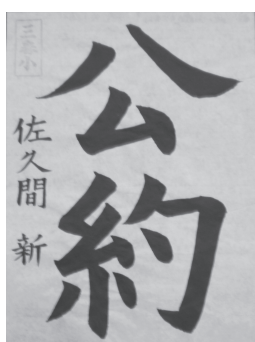 公約
佐久間 新